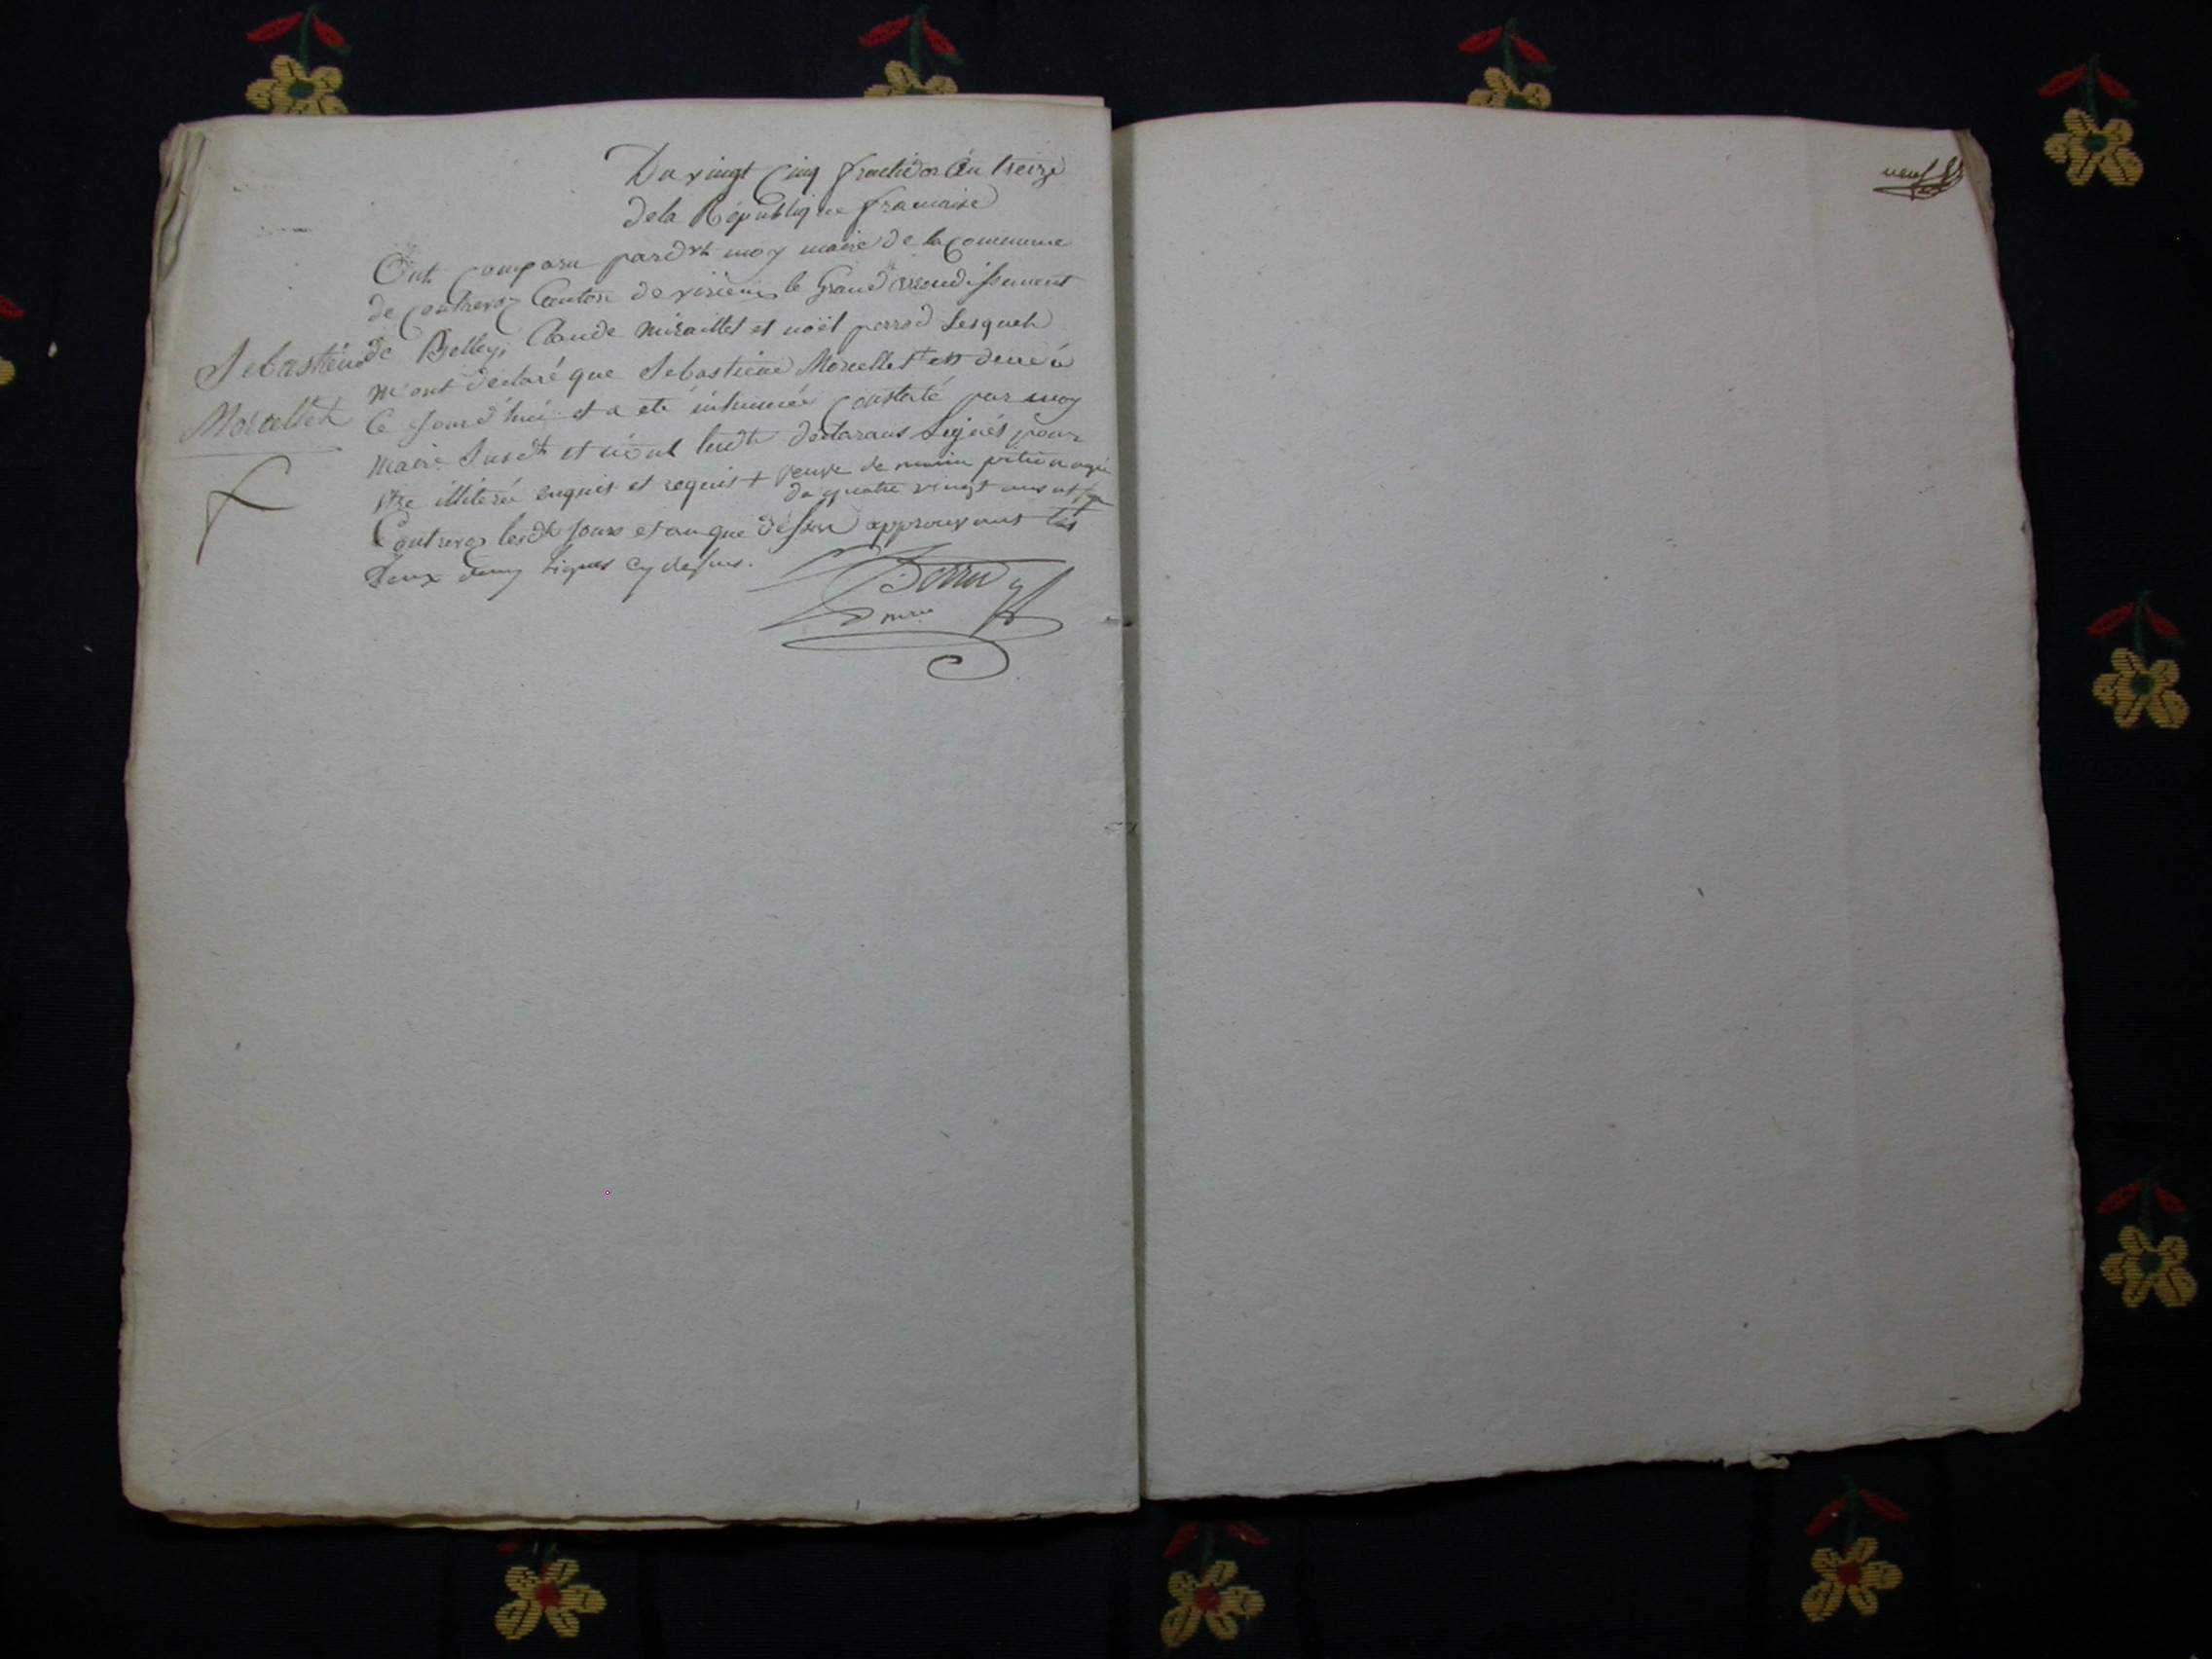 Du vingt Cinq fructidor An treize
de la République francaise
Ont comparu pardvt moy maire de la Commune
de Contrevoz Canton de virieux le Grand arrondissement
de Belley, Claude Miraillet et noël perrod Lesquels
m'ont declaré que Sebastiene Morcellet +
Ce jourd'hui et a eté inhumée Constaté par moy
Maire Susdt et n'ont lesdts declarans Signés pour
être illiteré enquis et requis + veuve de
de quatre vingt ans
Contrevoz lesdts jours et an que dessus approuvant les
Deux demy Lignes cy dessus.
Sebastiene
Morcellet
mre
neuf